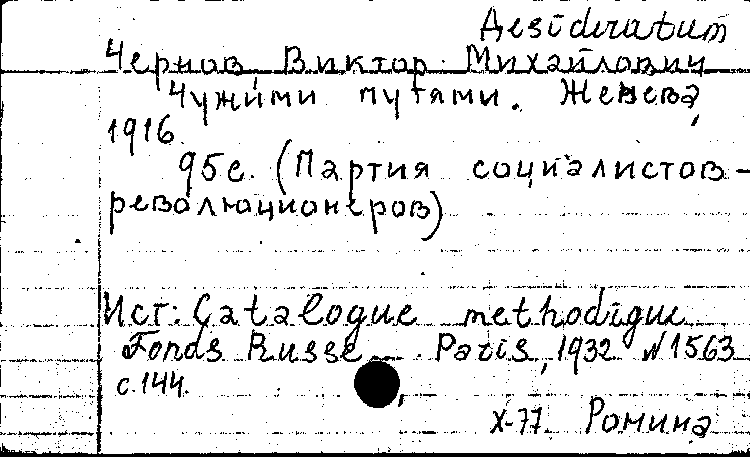 Desideratum
Чернов, Виктор Михайлович
Чужими путями. Женева,
1916.
95с. (Партия социалистов-
революционеров)
Ист: Catalogue methodique
Fonds Russe. Paris, 1932 N1563
с.144.
X-77. Ромина